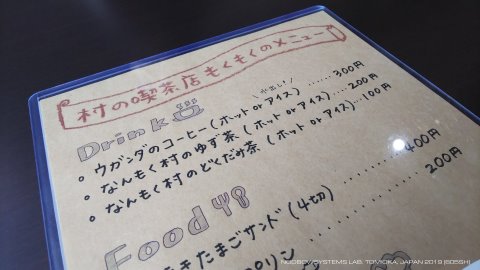 村の喫茶店もくもくのメニュー
Drink
水出し!
• ウガンダのコーヒー(ホット or アイス) ...... 300円
• なんもく村のゆず茶(ホット or アイス) ...... 200円
• なんもく村のどくだみ茶(ホット or アイス) ... 100円
Food
きたまごサンド(4切) ......... 400円
プリン ......... 200円
NOGBOW SYSTEMS LAB. TOMIOKA, JAPAN 2019